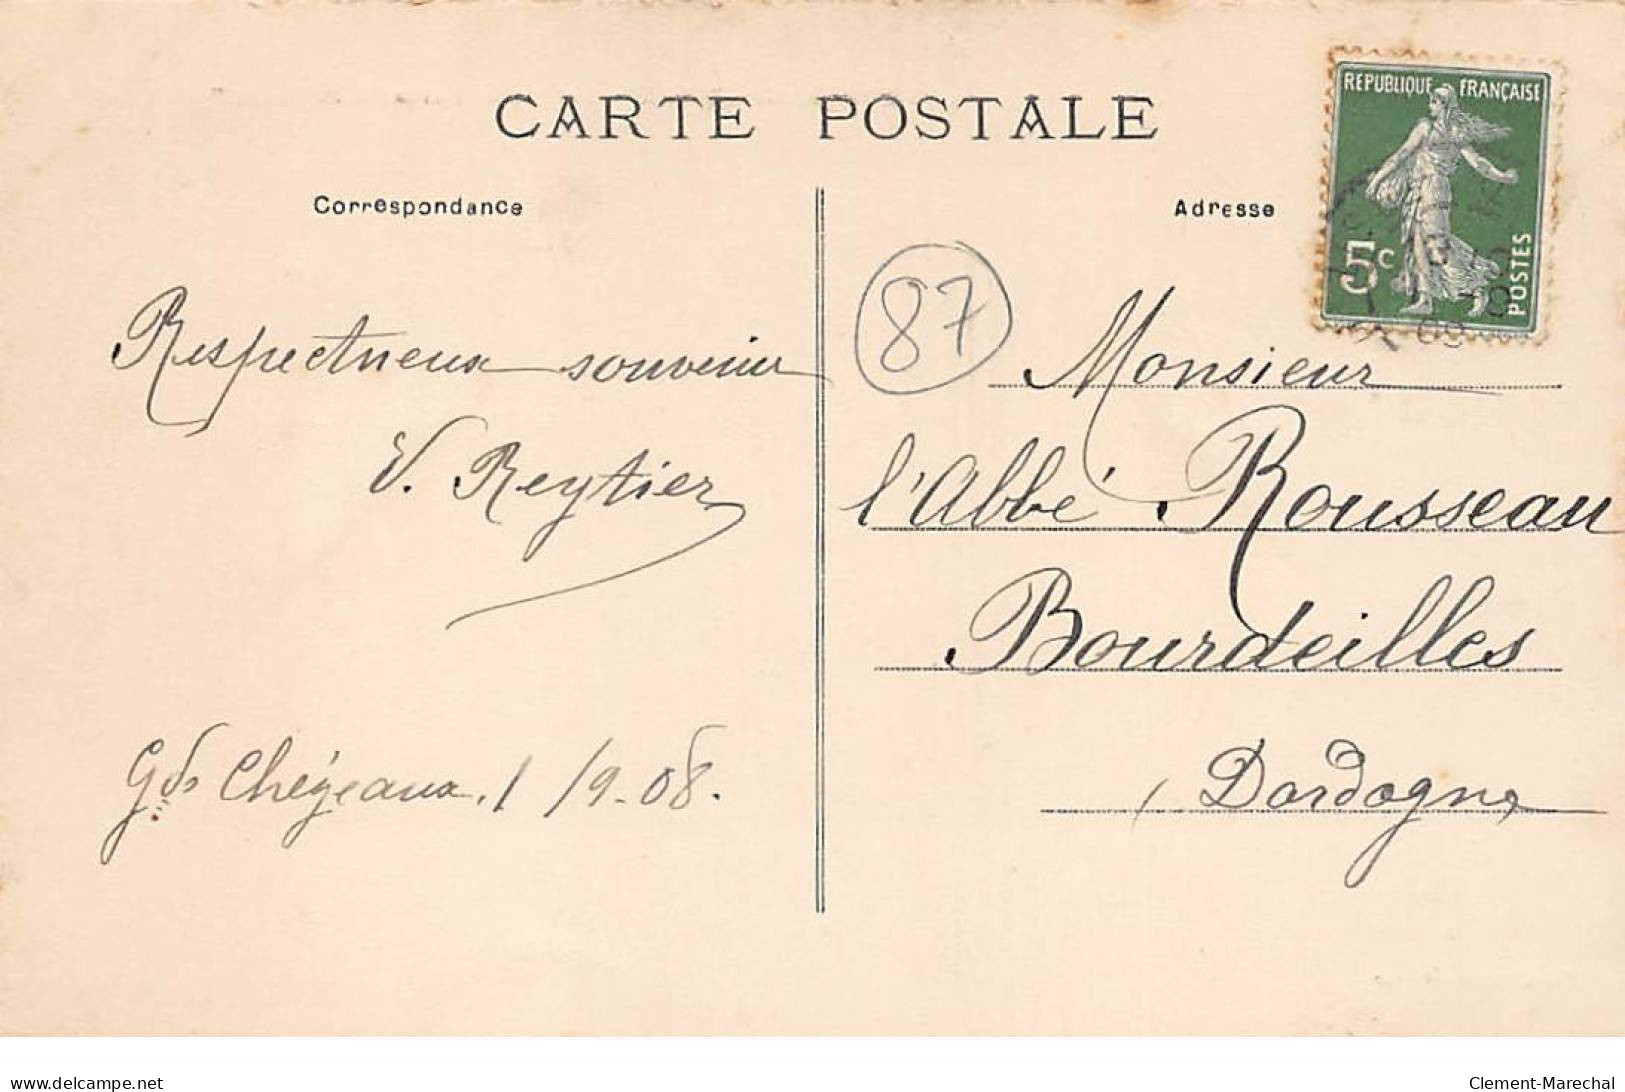 CARTE POSTALE
Correspondance
Respectueux souvenir
V. Reytier
Gds Chézeaux, 1/9-08.
Adresse
REPUBLIQUE FRANÇAISE
5c
POSTES
87
Monsieur
l'Abbé Rousseau
Bourdeilles
Dordogne
delcampe.net
Clement-Marechal